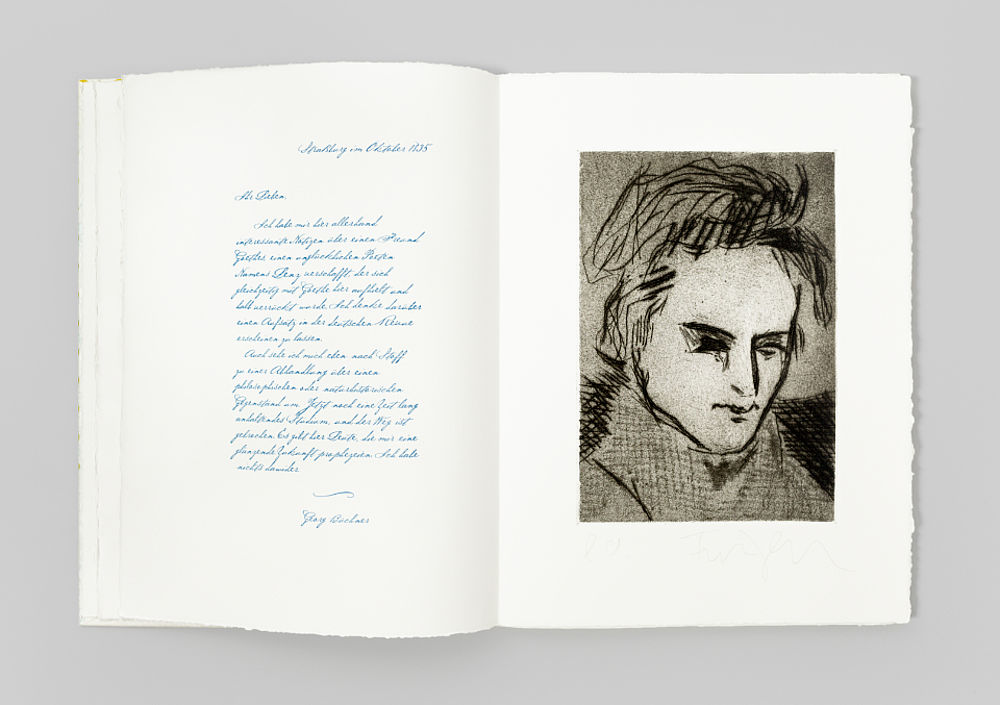 Straßburg im Oktober 1835
Ihr Lieben,
Ich habe mir hier allerhand
interessante Notizen über einen Freund
Goethes einen unglücklichen Poeten
Namens Lenz verschafft, der sich
gleichzeitig mit Goethe hier aufhielt und
halb verrückt wurde. Ich denke darüber
einen Aufsatz in der deutschen Revue
erscheinen zu lassen.
Auch sehe ich mich eben nach Stoff
zu einer Abhandlung über einen
philosophischen oder naturhistorischen
Gegenstand um. Jetzt noch eine Zeit lang
anhaltendes Studium, und der Weg ist
gebrochen. Es gibt hier Leute, die mir eine
glänzende Zukunft prophezeien. Ich habe
nichts dawider.
Georg Büchner